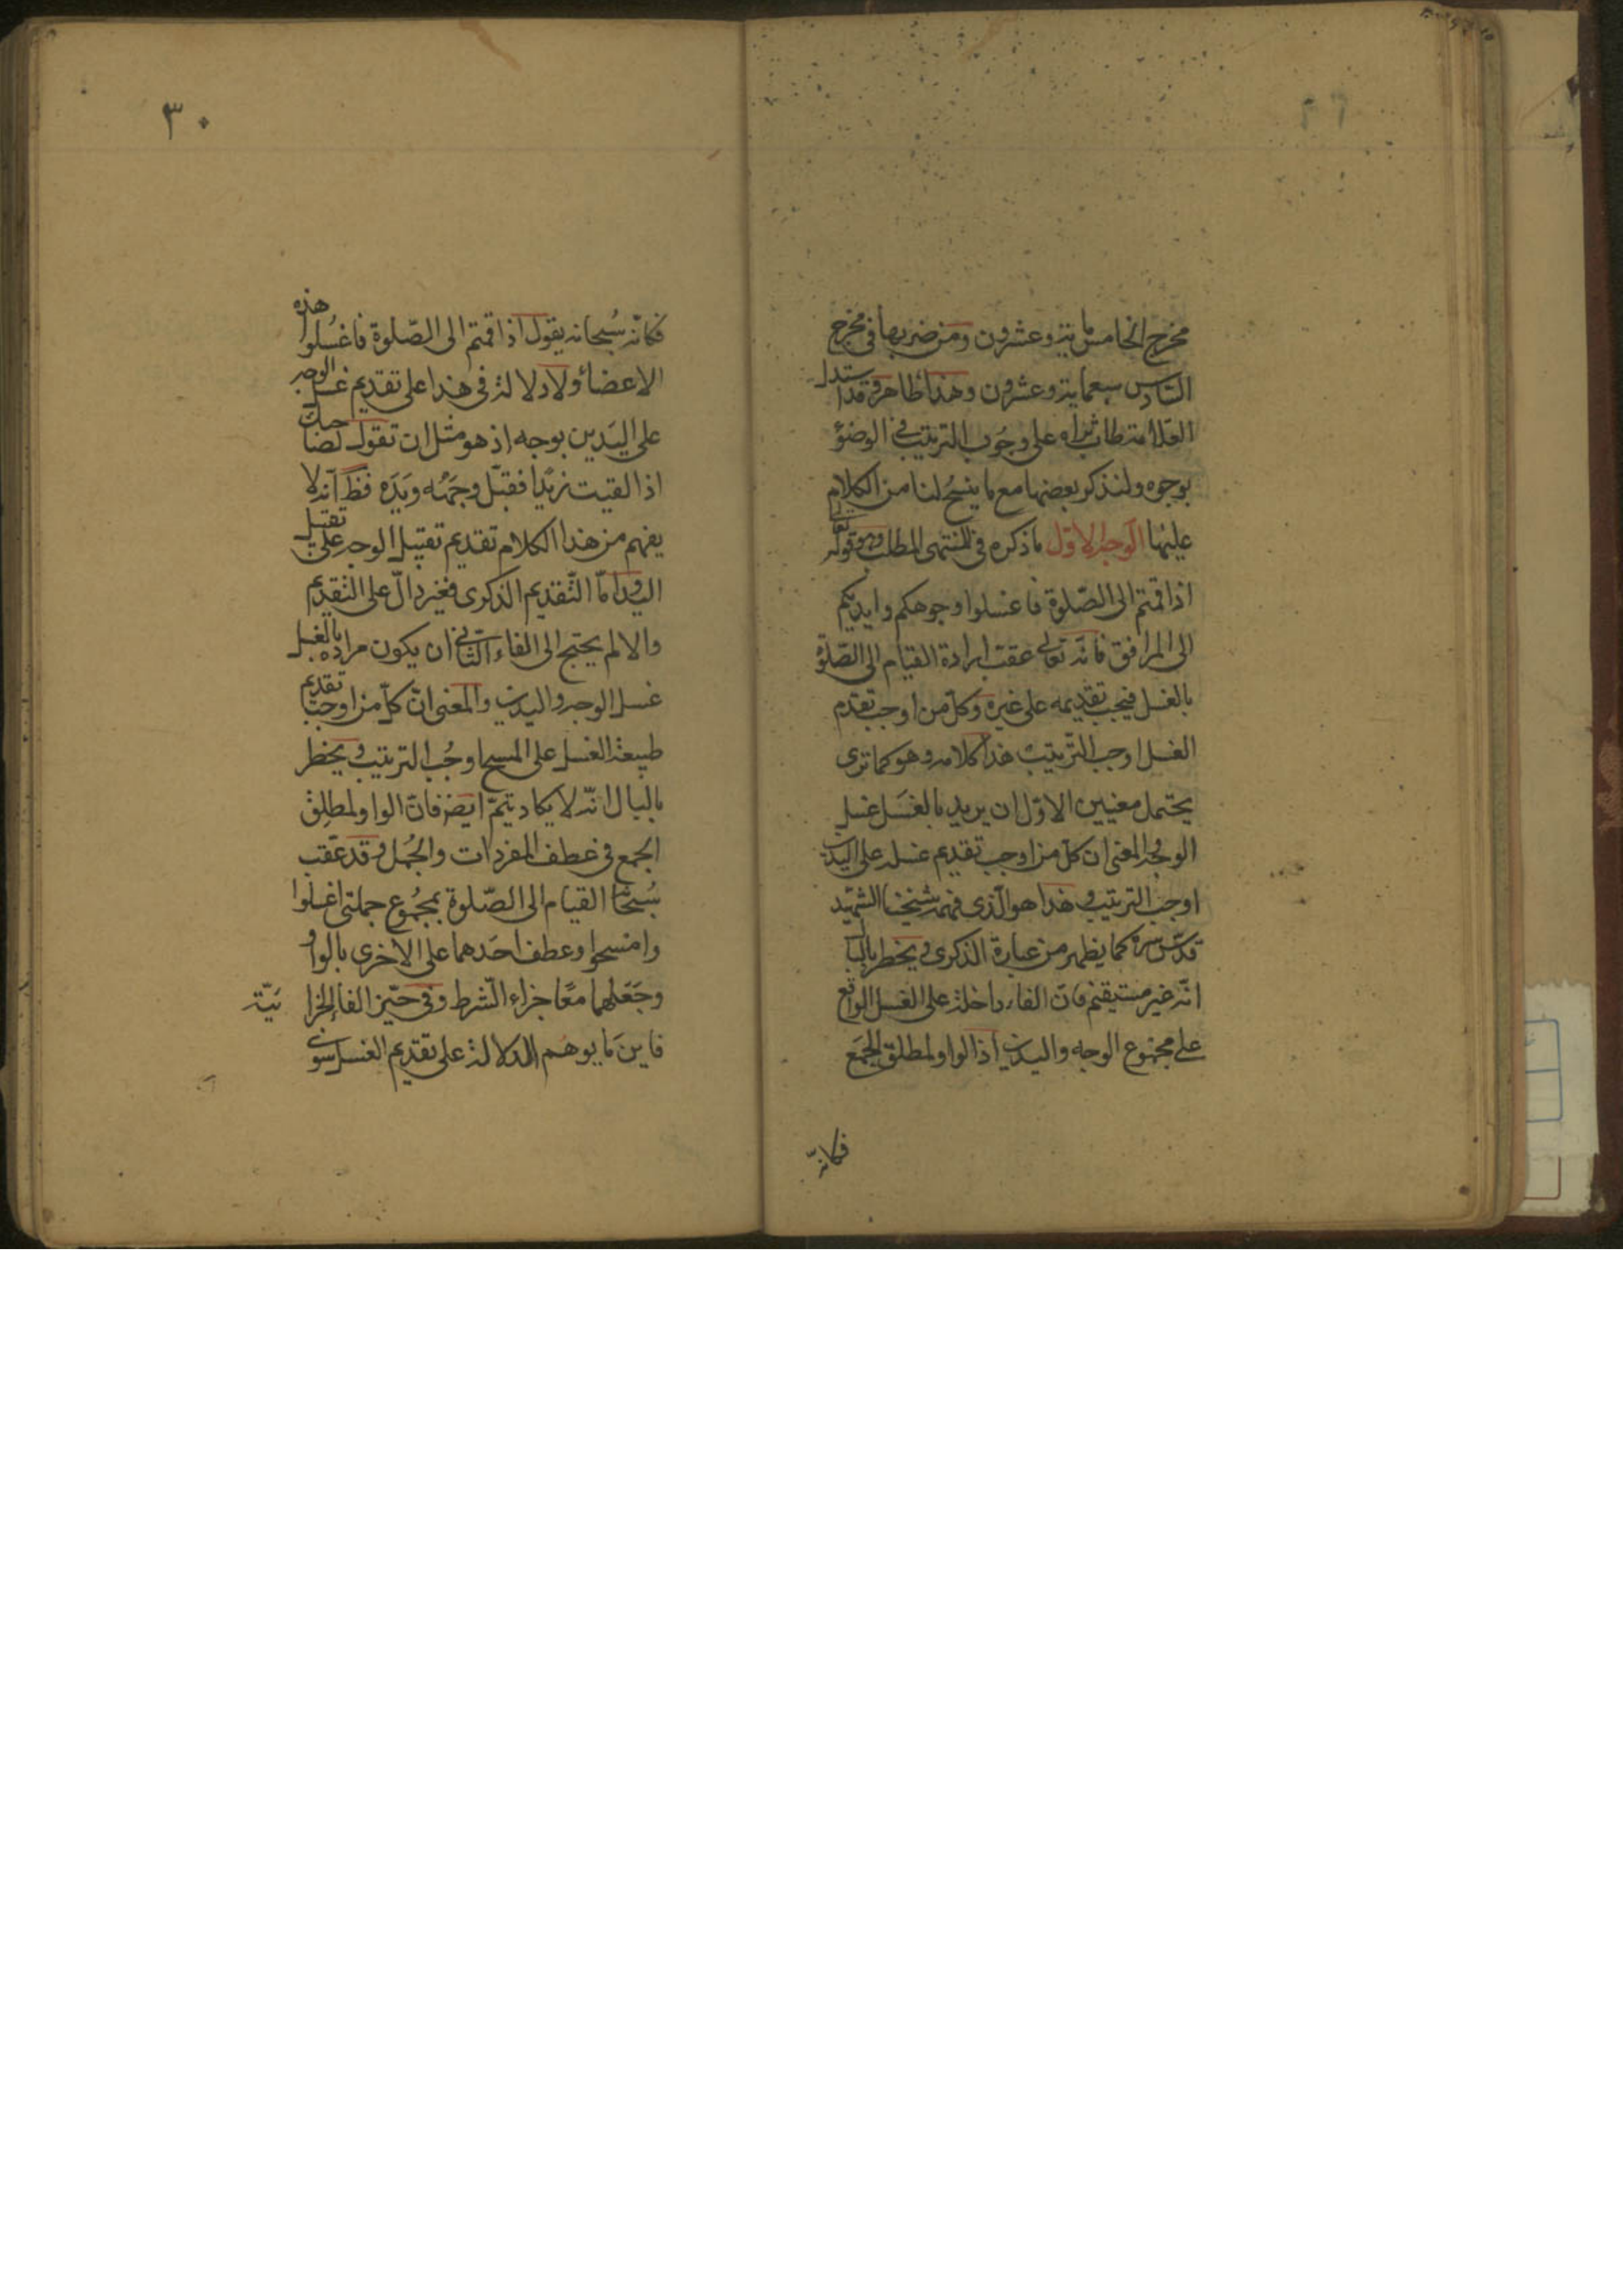 مخرج الخامس ماية وعشرون ومن ضربها في مخرج
السادس سبعماية وعشرون وهذا ظاهر وقد استدل
العلامة طاب ثراه على وجوب الترتيب في الوضوء
بوجوه ولنذكر بعضها مع ما يسنح لنا من الكلام
عليها الوجه الاول ما ذكره في المنتهى المطلب وهو قوله تعالى
اذا قمتم الى الصلوة فاغسلوا وجوهكم وايديكم
الى المرافق فانه تعالى عقب ارادة القيام الى الصلوة
بالغسل فيجب تقديمه على غيره وكل من اوجب تقدم
الغسل اوجب الترتيب هذا كلامه وهو كما ترى
يحتمل معنيين الاول ان يريد بالغسل غسل
الوجه والمعنى ان كل من اوجب تقديم غسله على اليدين
اوجب الترتيب وهذا هو الذي فهمه شيخنا الشهيد
قدس سره كما يظهر من عبارة الذكرى ويخطر بالبال
انه غير مستقيم فان الفاء داخلة على الغسل الواقع
على مجموع الوجه واليدين اذ الواو لمطلق الجمع
فكانه
٣٠
فكانه سبحانه يقول اذا قمتم الى الصلوة فاغسلوا هذه
الاعضاء ولا دلالة في هذا على تقديم غسل الوجه
على اليدين بوجه اذ هو مثل ان تقول لصاحبك
اذا لقيت زيدا فقبل وجهه ويده فظ انه لا
يفهم من هذا الكلام تقديم تقبيل الوجه على تقبيل
اليد واما التقديم الذكرى فغير دال على التقديم
والا لم يحتج الى الفاء الثاني ان يكون مراده بالغسل
غسل الوجه واليدين والمعنى ان كل من اوجب تقديم
طبيعة الغسل على المسح اوجب الترتيب ويخطر
بالبال انه لا يكاد يتم ايضا فان الواو لمطلق
الجمع في عطف المفردات والجمل وقد عقب
سبحانه القيام الى الصلوة بمجموع جملتي اغسلوا
وامسحوا وعطف احدهما على الاخرى بالواو
وجعلهما معا جزاء الشرط وفي حيز الفاء الجزائية
فاين ما يوهم الدلالة على تقديم الغسل سوى